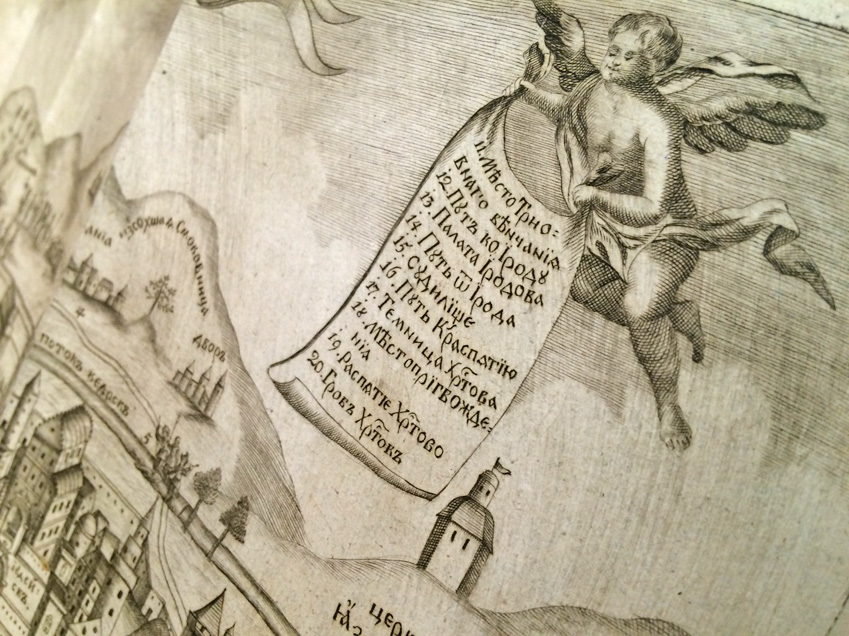 11. Мѣсто Трно=
внаго вѣнчанїѧ
12. Путъ ко Іроду
13. Палата Іродова
14. Путь ѿ Ірода
15. Судиліще
16. Путь К'распатїю
17. Темница Хр҃това
18. Мѣстопрігвожде=
нїа
19. Распатїе Хр҃тово
20. Гробъ Хр҃товъ
изсохша Смоковница
дворъ
4
потокъ кедрскъ
5
церк